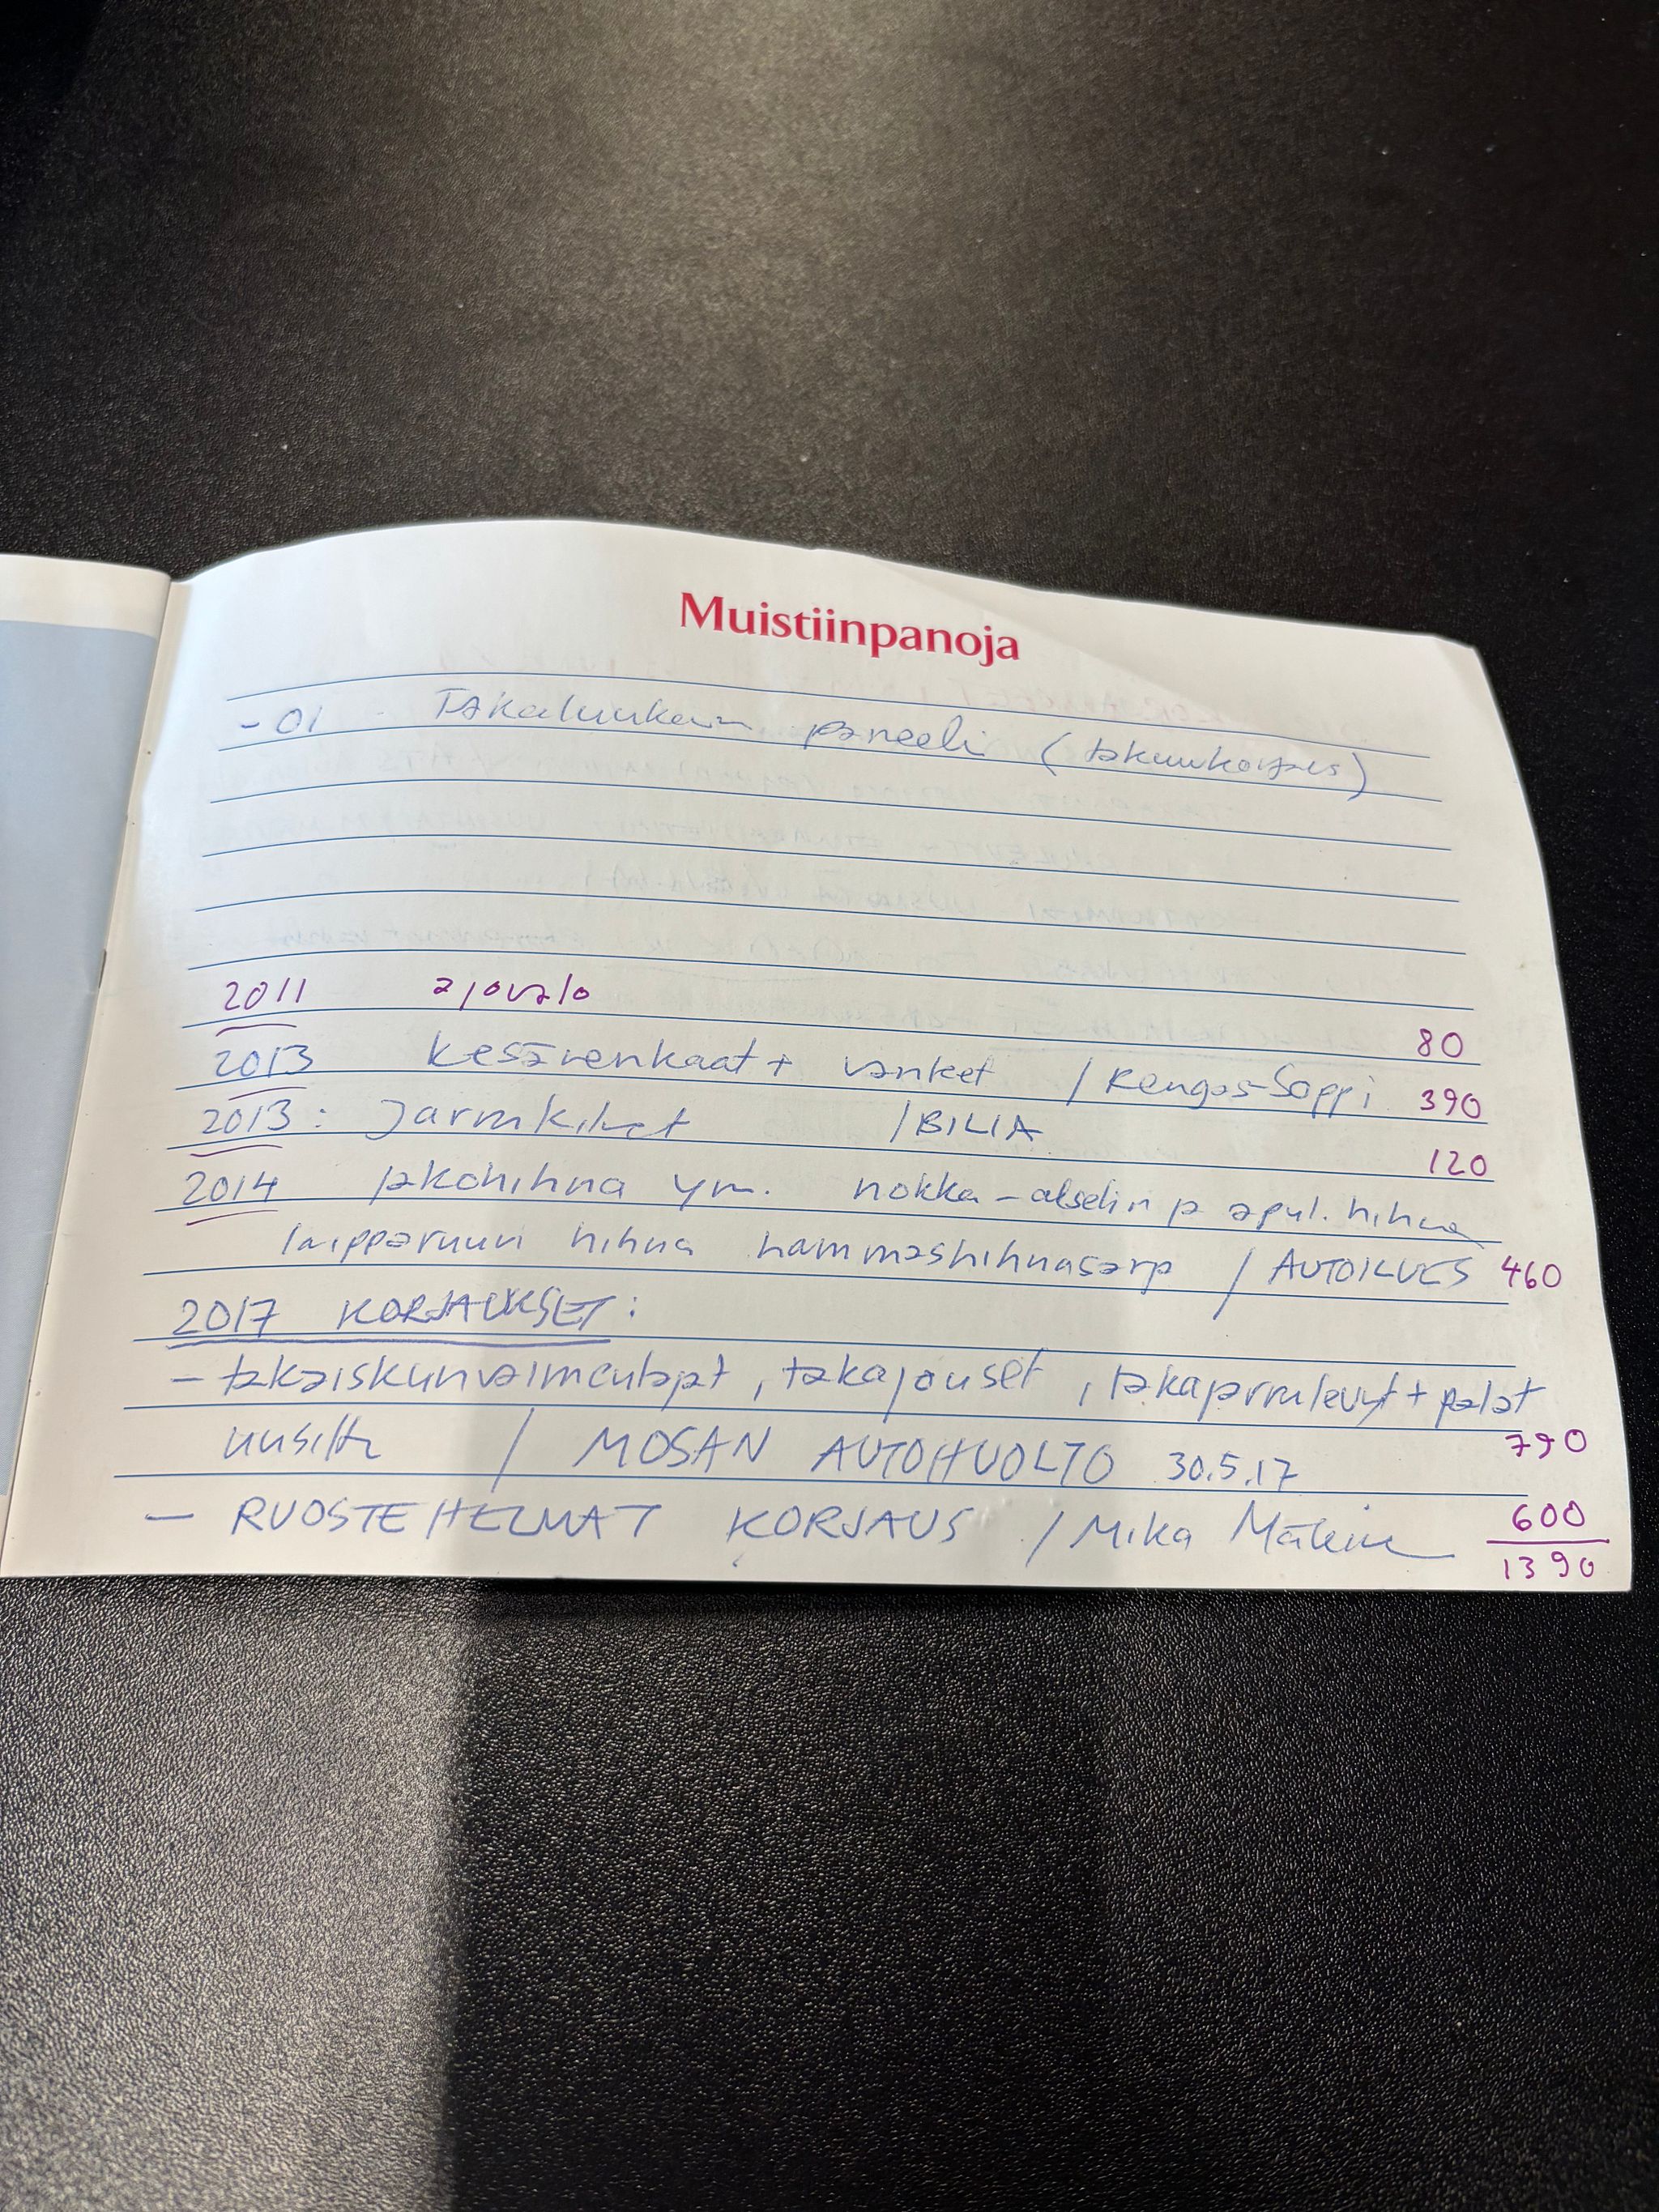 Muistiinpanoja
-01 Takaluukun paneeli (takuukorjaus)
2011 ajovalo 80
2013 kesärenkaat + vanteet / Rengas-Soppi 390
2013: Jarrukilvet / BILIA 120
2014 jakohihna ym. nokka-akselin p apul. hihna
laipparuuvi hihna hammashihnasarja / AUTOILVES 460
2017 KORJAUKSET:
- takaiskunvaimentajat, takajouset, takajarrulevyt + palat
uusittu / MOSAN AUTOHUOLTO 30.5.17 790
- RUOSTEHELMAT KORJAUS / Mika 600
1390